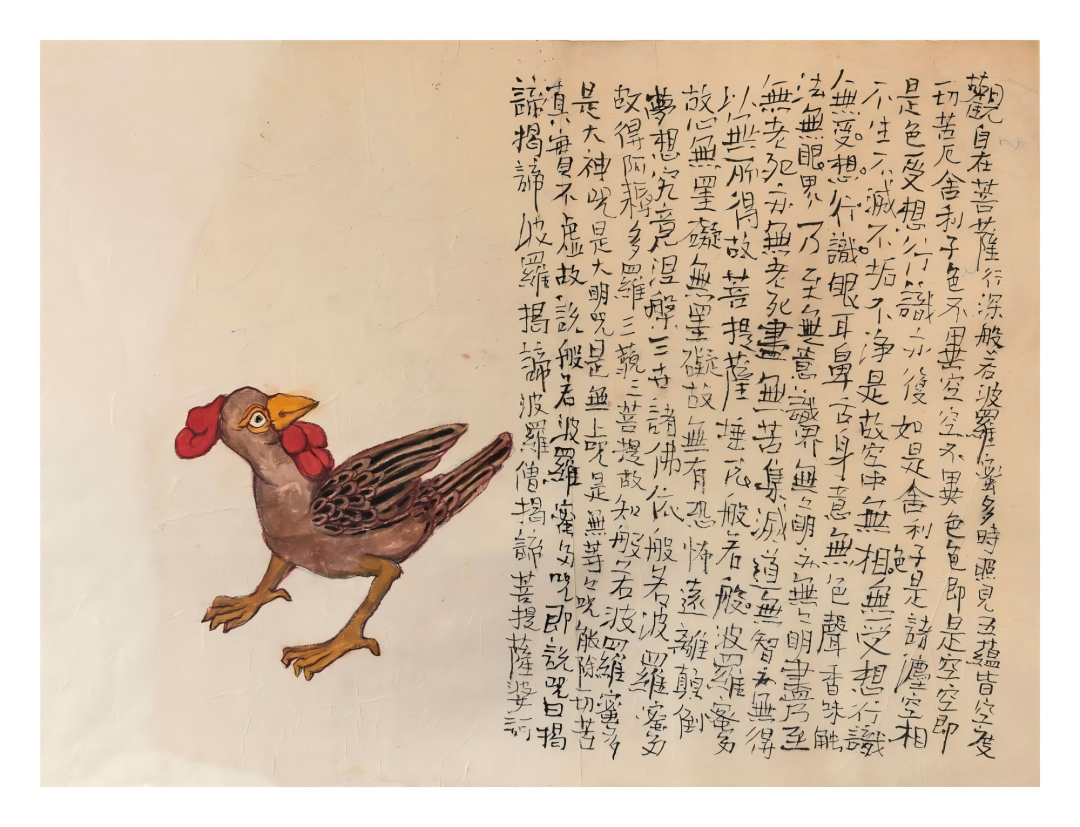 觀自在菩薩行深般若波羅蜜多時照見五蘊皆空度
一切苦厄舍利子色不異空空不異色色即是空空即
是色受想行識亦復如是舍利子是諸灋空相
不生不滅不垢不淨是故空中無相色無受想行識
無受想行識眼耳鼻舌身意無色聲香味触
法無眼界乃至無意識界無々明亦無々明盡乃至
無老死亦無老死盡無苦集滅道無智亦無得
以無所得故菩提薩埵依般若般波羅蜜多
故心無罣礙無罣礙故無有恐怖遠離顛倒
夢想究竟涅槃三世諸佛依般若波羅蜜多
故得阿耨多羅三藐三菩提故知般若波羅蜜多
是大神咒是大明咒是無上咒是無等々咒能除一切苦
真實不虛故說般若波羅蜜多咒即說咒曰揭
諦揭諦波羅揭諦波羅僧揭諦菩提薩婆訶